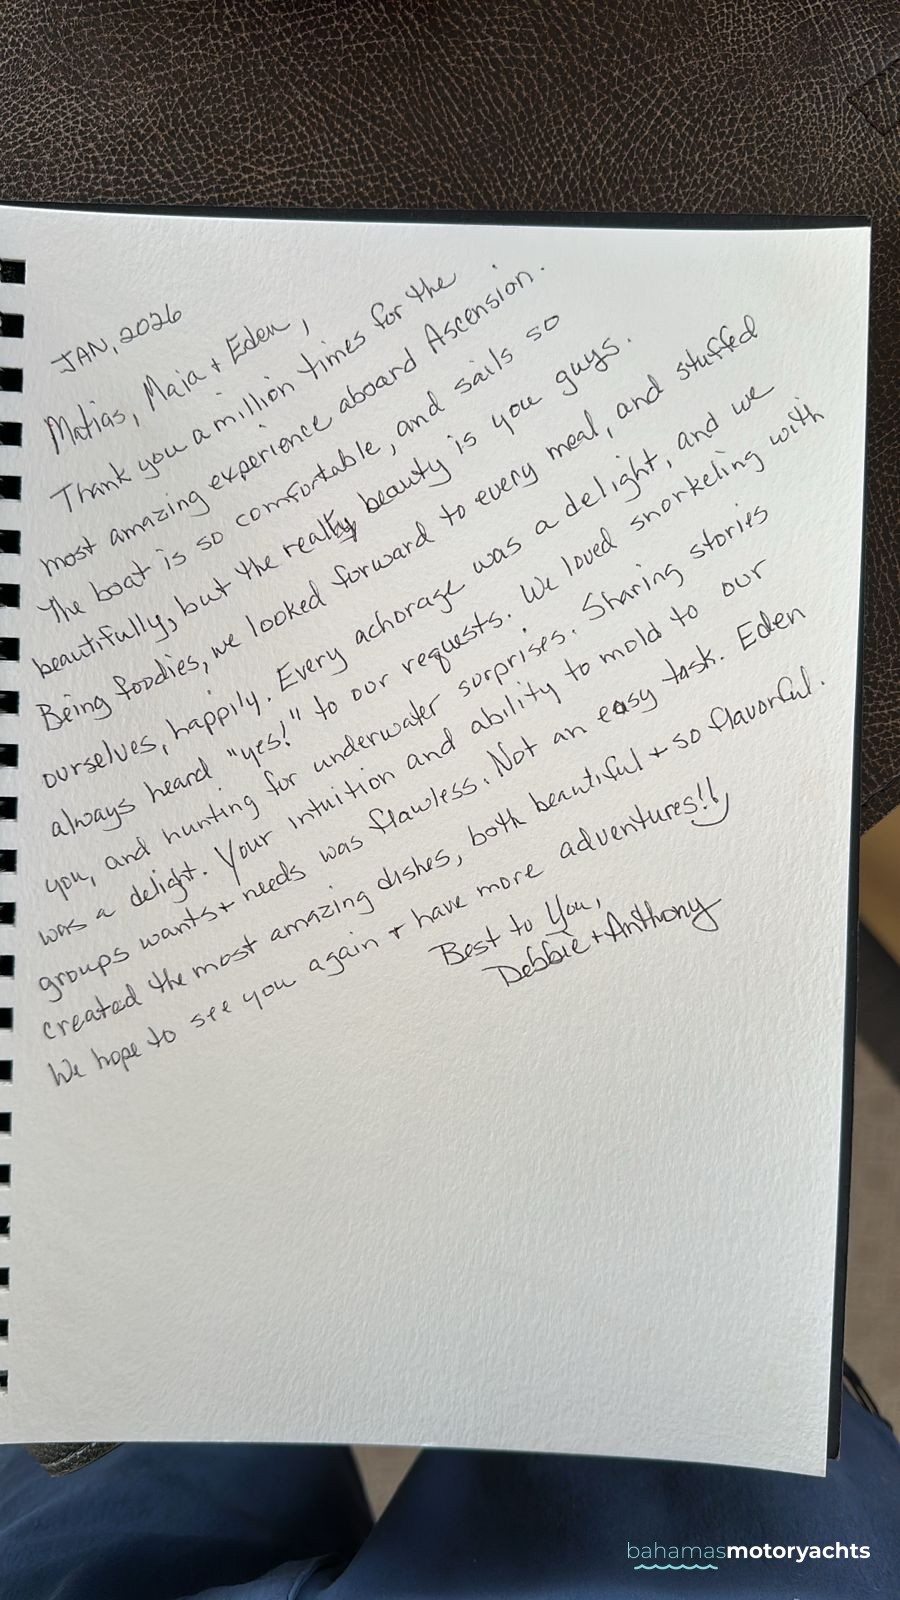 JAN, 2026
Matias, Maia + Eden,
Thank you a million times for the
most amazing experience aboard Ascension.
The boat is so comfortable, and sails so
beautifully, but the real beauty is you guys.
Being foodies, we looked forward to every meal, and stuffed
ourselves, happily. Every achorage was a delight, and we
always heard "yes!" to our requests. We loved snorkeling with
you, and hunting for underwater surprises. Sharing stories
was a delight. Your intuition and ability to mold to our
groups wants + needs was flawless. Not an easy task. Eden
created the most amazing dishes, both beautiful + so flavorful.
We hope to see you again + have more adventures!!
Best to You,
Debbie + Anthony
bahamasmotoryachts